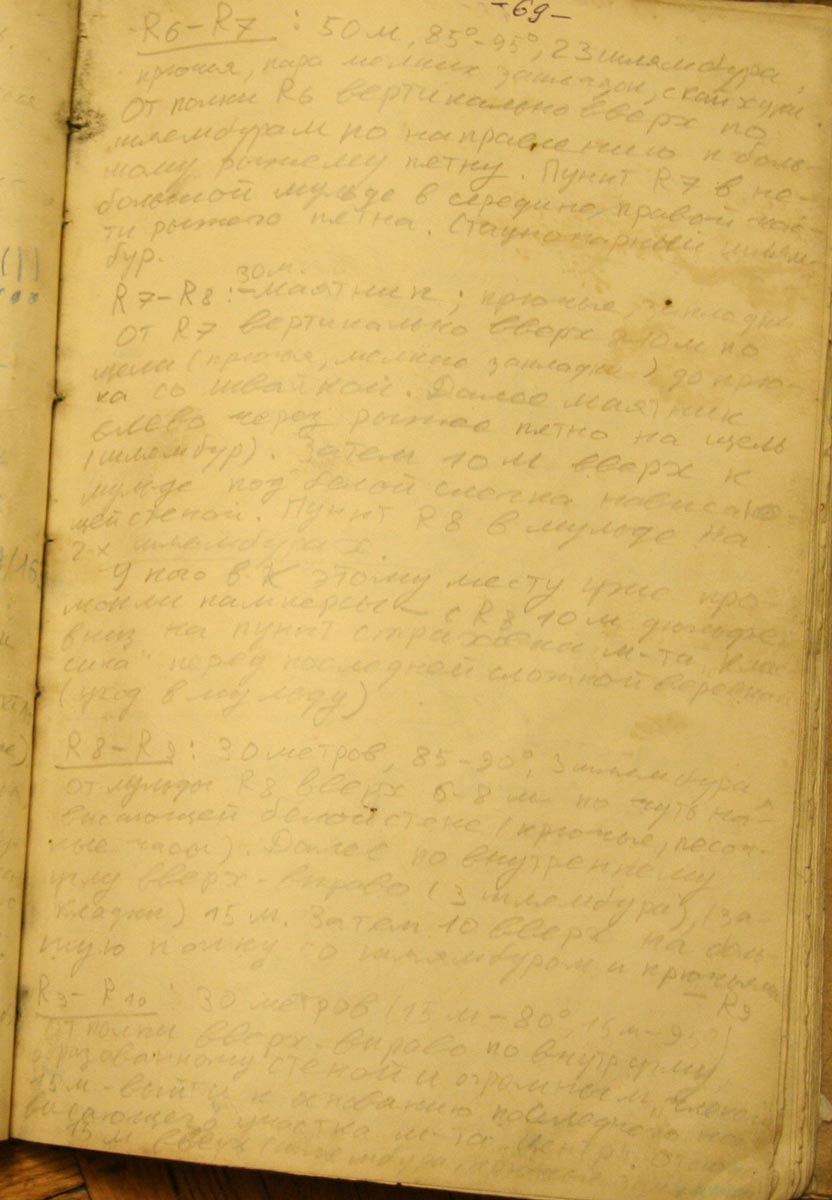 -69-
R6-R7 : 50 м, 85°-95°, 23 шлямбура,
крючья, пара мелких закладок, скайхуки.
От полки R6 вертикально вверх по
шлямбурам по направлению к боль-
шому рыжему пятну. Пункт R7 в не-
большой мульде в середине правой час-
ти рыжего пятна. Стационарный шлям-
бур.
30 м.
R7-R8: - маятник; крючья, закладки
От R7 вертикально вверх 10 м по
щели (крючья, мелкие закладки) до крю-
ка со швайкой. Далее маятник
влево через рыжее пятно на щель
(шлямбур). Затем 10 м вверх к
мульде под белой слегка нависаю-
щей стеной. Пункт R8 в мульде на
2-х шлямбурах.
У кого в к этому месту уже про-
мокли памперсы - с R8 10 м дюльфер
вниз на пункт страховки м-та "Клас-
сика" перед последней сложной веревкой
(уход в мульду)
R8-R9 : 30 метров, 85-90°, 3 шлямбура
От мульды R8 вверх 6-8 м по чуть на-
висающей белой стене (крючья, песоч-
ные часы). Далее по внутреннему
углу вверх-вправо (3 шлямбура), (за-
кладки) 15 м. Затем 10 вверх на боль-
шую полку со шлямбуром и крючьями
- R9
R9-R10 : 30 метров (15 м - 80°, 15 м -
От полки вверх-вправо по внутр углу,
образованному стеной и огромным
15 м - выйти к основанию последнего на-
висающего участка м-та Центр.
15 м вверх (шлямбура, крючья,